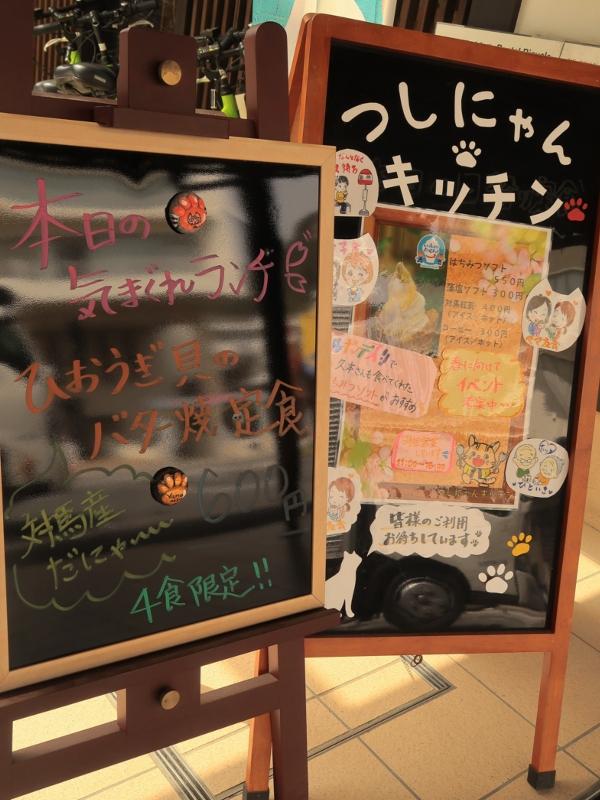 本日の
気まぐれランチ
ひおうぎ貝の
バター焼定食
600円
対馬産
だにゃ〜
4食限定!!
つしにゃん
キッチン
はちみつソフト
550円
藻塩ソフト 300円
対馬紅茶 400円
(アイス/ホット)
コーヒー 300円
(アイス/ホット)
久本さんも食べてくれた
おすすめ
春に向けて
イベント
企画中
11:00〜15:00
ひといき
皆様のご利用
お待ちしています